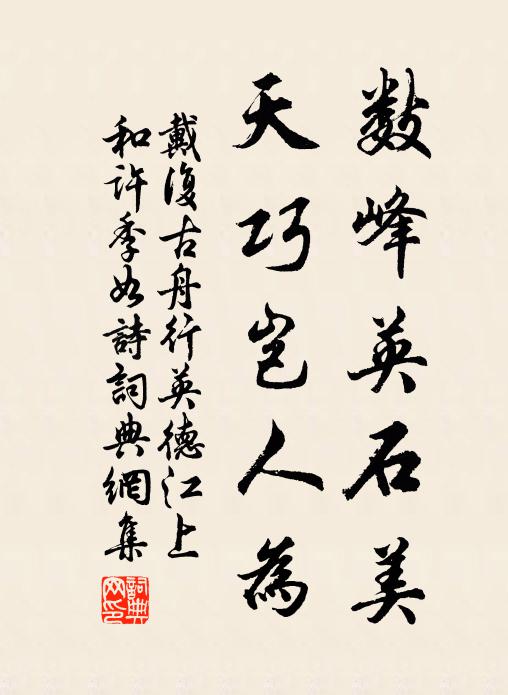 数峰英石美
天巧岂人為
戴復古舟行英德江上
和許季如詩詞典網集
詞典網印